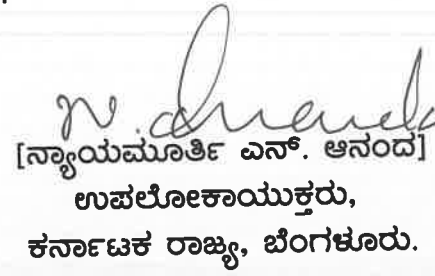 N. Ananda
[ನ್ಯಾಯಮೂರ್ತಿ ಎನ್. ಆನಂದ]
ಉಪಲೋಕಾಯುಕ್ತರು,
ಕರ್ನಾಟಕ ರಾಜ್ಯ, ಬೆಂಗಳೂರು.